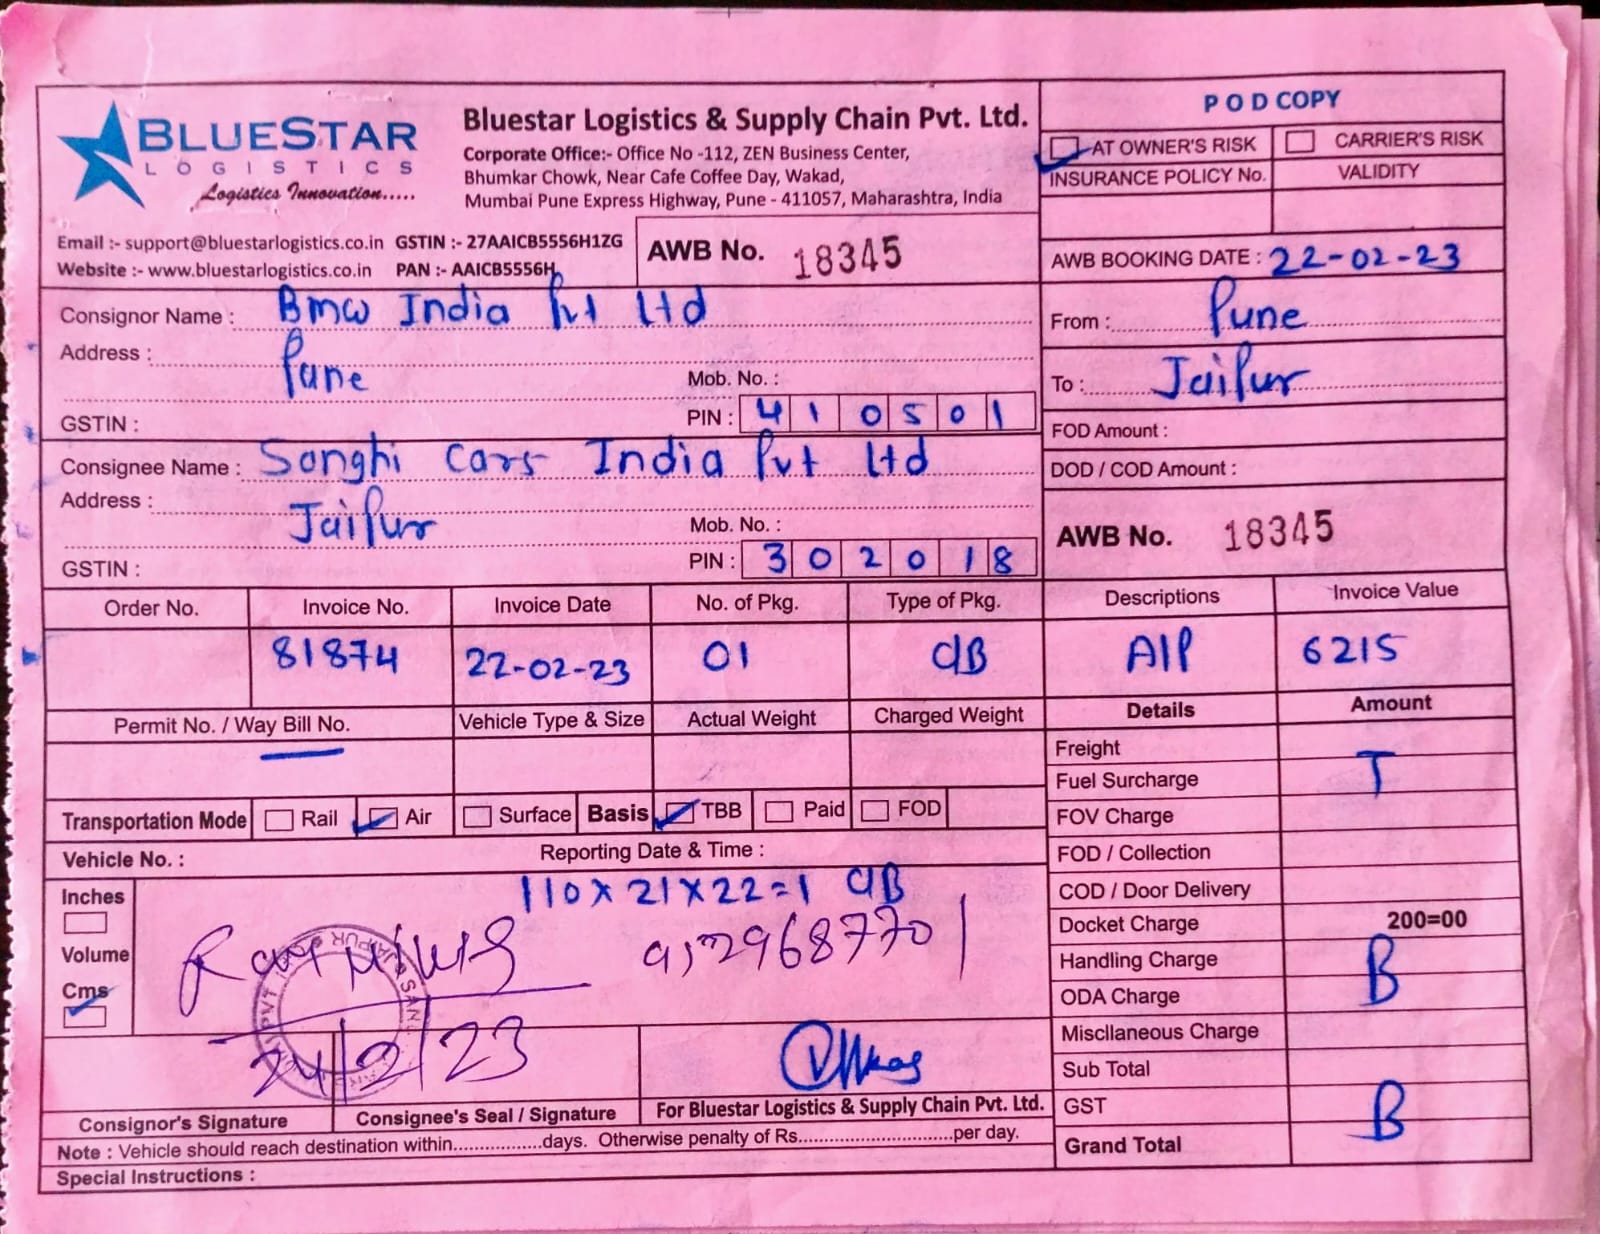 BLUESTAR
LOGISTICS
Logistics Innovation.....
Bluestar Logistics & Supply Chain Pvt. Ltd.
Corporate Office:- Office No -112, ZEN Business Center,
Bhumkar Chowk, Near Cafe Coffee Day, Wakad,
Mumbai Pune Express Highway, Pune - 411057, Maharashtra, India
Email :- support@bluestarlogistics.co.in GSTIN :- 27AAICB5556H1ZG
Website :- www.bluestarlogistics.co.in PAN :- AAICB5556H
AWB No. 18345
POD COPY
AT OWNER'S RISK CARRIER'S RISK
INSURANCE POLICY No. VALIDITY
AWB BOOKING DATE : 22-02-23
Consignor Name : Bmw India Pvt Ltd
Address : Pune
Mob. No. :
GSTIN : PIN : 410501
From : Pune
To : Jaipur
FOD Amount :
DOD / COD Amount :
Consignee Name : Sanghi Cars India Pvt Ltd
Address : Jaipur
Mob. No. :
GSTIN : PIN : 302018
AWB No. 18345
Order No. Invoice No. Invoice Date No. of Pkg. Type of Pkg. Descriptions Invoice Value
81874 22-02-23 01 CB AIP 6215
Permit No. / Way Bill No. Vehicle Type & Size Actual Weight Charged Weight Details Amount
Freight
Fuel Surcharge T
FOV Charge
FOD / Collection
COD / Door Delivery
Docket Charge 200=00
Handling Charge B
ODA Charge
Miscllaneous Charge
Sub Total
GST B
Grand Total
Transportation Mode Rail Air Surface Basis TBB Paid FOD
Vehicle No. : Reporting Date & Time :
Inches
Volume
Cms
110 x 21 x 22 = 1 CB
24/2/23
Consignor's Signature Consignee's Seal / Signature For Bluestar Logistics & Supply Chain Pvt. Ltd.
Note : Vehicle should reach destination within.................days. Otherwise penalty of Rs.............................per day.
Special Instructions :